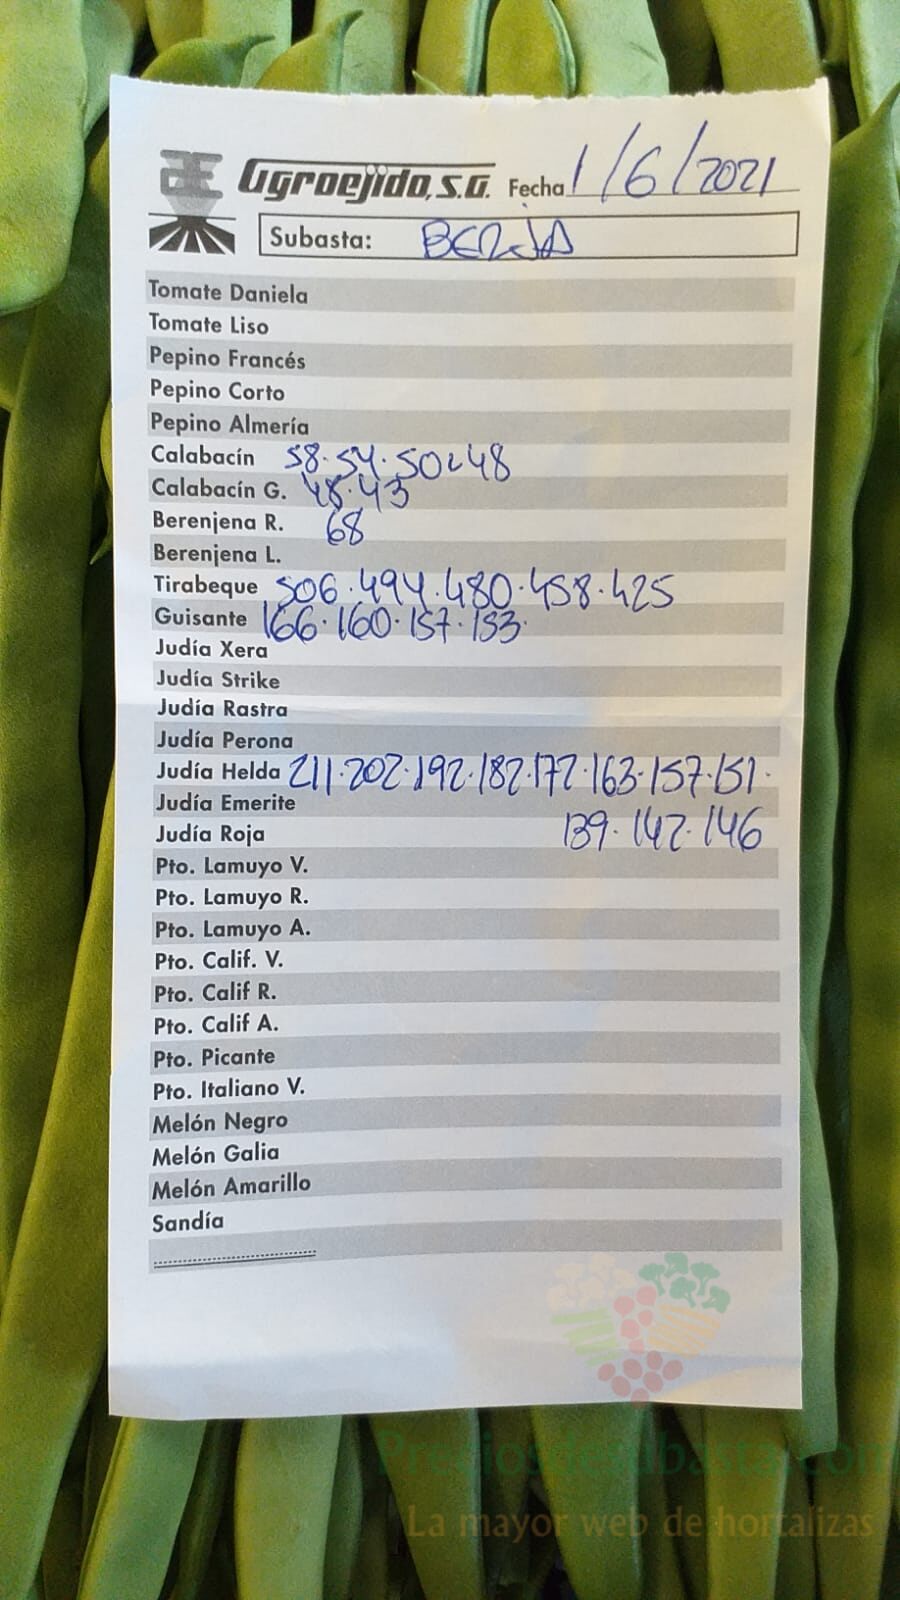 Agroejido, S.A. Fecha 1/6/2021
Subasta: BERJA
Tomate Daniela
Tomate Liso
Pepino Francés
Pepino Corto
Pepino Almería
Calabacín 58.54.50.48
Calabacín G. 48.43
Berenjena R. 68
Berenjena L.
Tirabeque 506.494.480.458.425
Guisante 166.160.157.153.
Judía Xera
Judía Strike
Judía Rastra
Judía Perona
Judía Helda 211.202.192.182.172.163.157.151.
Judía Emerite
Judía Roja 139.142.146
Pto. Lamuyo V.
Pto. Lamuyo R.
Pto. Lamuyo A.
Pto. Calif. V.
Pto. Calif R.
Pto. Calif A.
Pto. Picante
Pto. Italiano V.
Melón Negro
Melón Galia
Melón Amarillo
Sandía
Preciosdesubasta.com
La mayor web de hortalizas